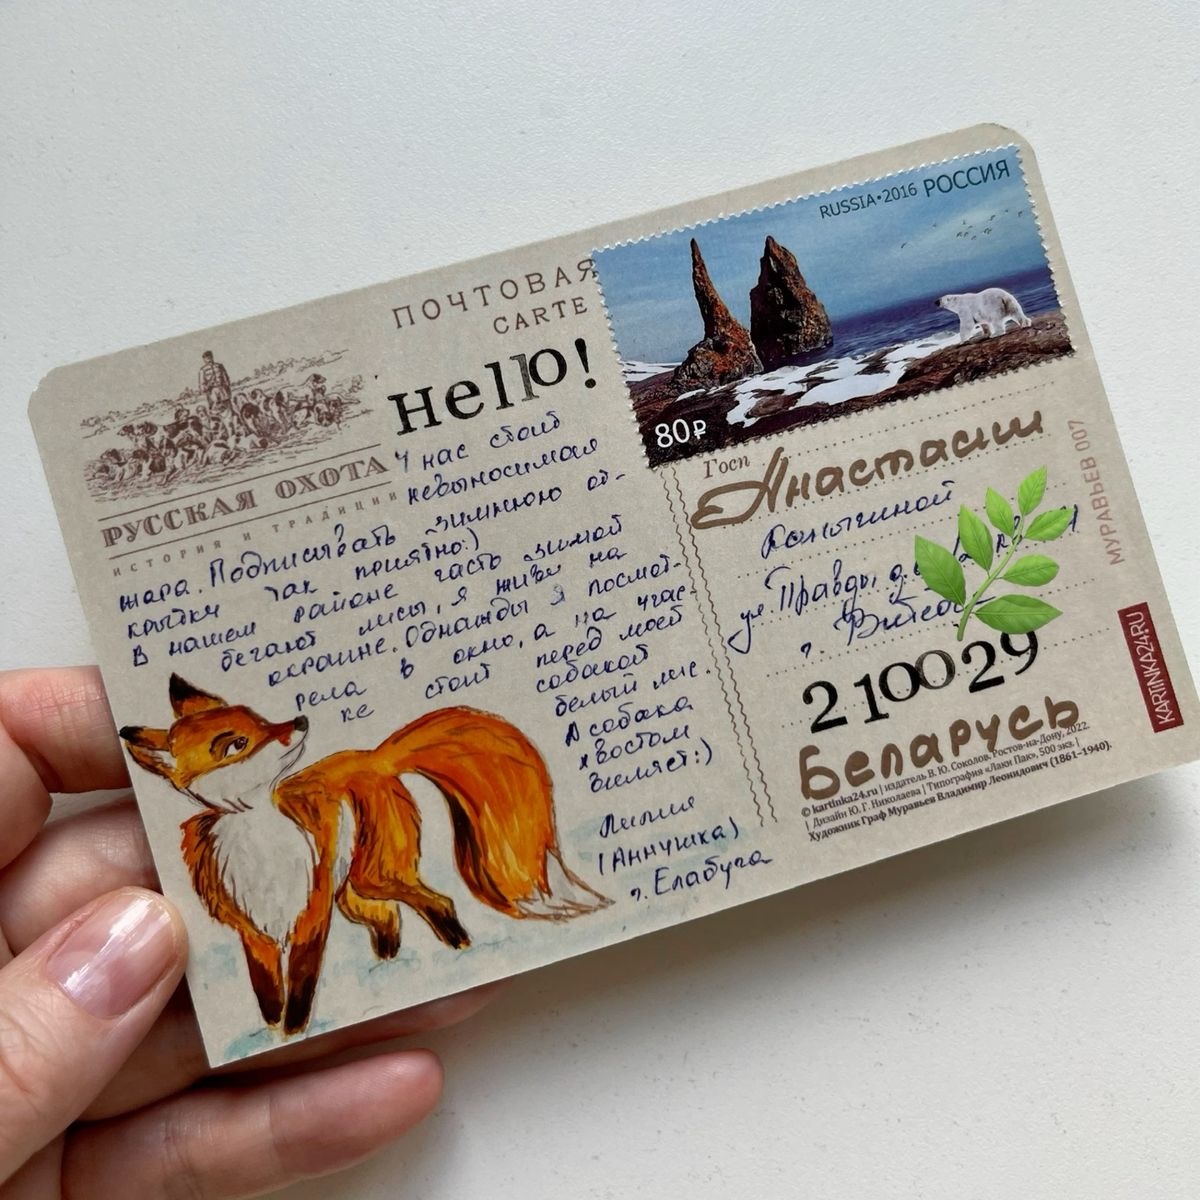 ПОЧТОВАЯ
CARTE
RUSSIA•2016 РОССИЯ
80₽
РУССКАЯ ОХОТА
ИСТОРИЯ И ТРАДИЦИИ
Hello!
У нас стоит
невыносимая
жара. Подписывать зимнюю от-
крытку так приятно:)
В нашем районе часто зимой
бегают лисы, я живу на
окраине. Однажды я посмот-
рела в окно, а на учас-
ке стоит перед моей
собакой
белый лис.
А собака
хвостом
виляет:)
Лилия
(Аннушка)
г. Елабуга
Госп Анастасии
ул. Правды, д.
г.
210029
Беларусь
© kartinka24.ru | издатель В. Ю. Соколов, Ростов-на-Дону, 2022.
| Дизайн Ю. Г. Николаева | Типография «Лаки Пак», 500 экз. |
Художник Граф Муравьев Владимир Леонидович (1861–1940).
МУРАВЬЕВ 007
KARTINKA24.RU